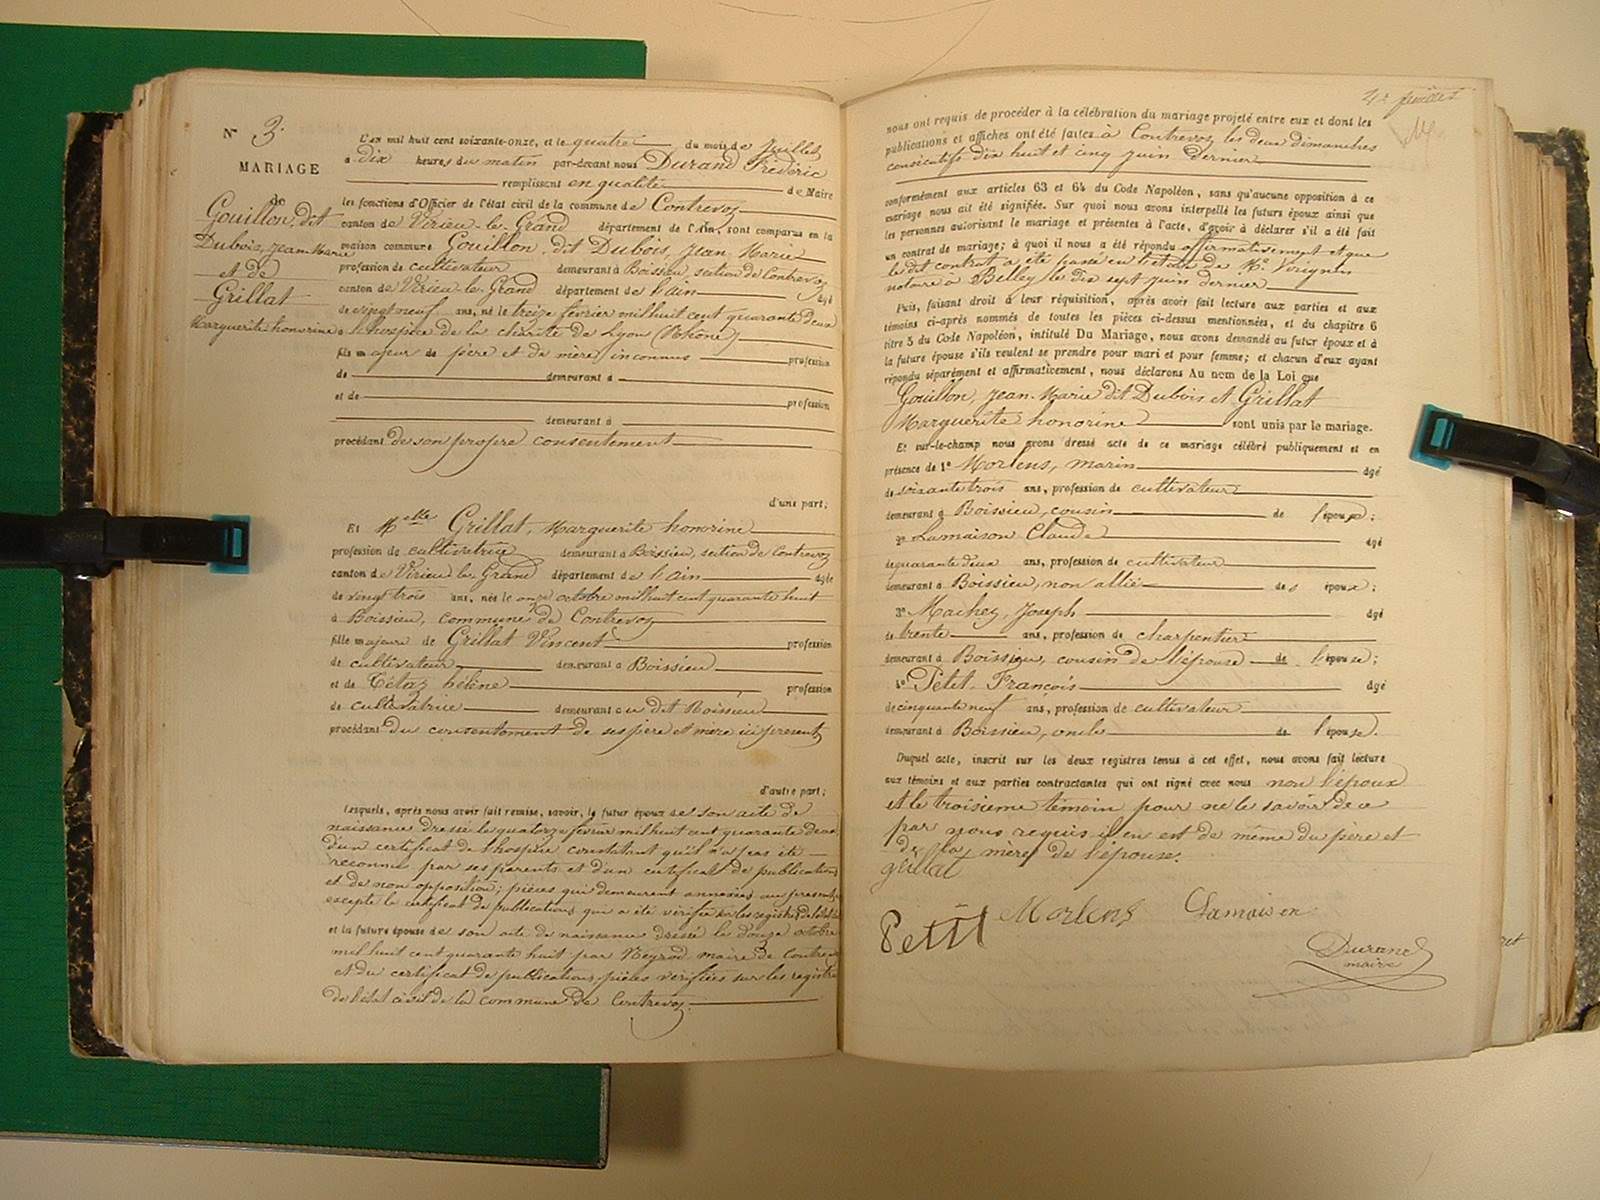 N° 3.
MARIAGE
de
Gouillon, dit
Dubois, Jean-Marie
et de
Grillat
Marguerite honorine
L'an mil huit cent soixante-onze, et le quatre du mois de Juillet
à dix heures du matin par-devant nous Durand Frédéric
remplissant en qualité de Maire
les fonctions d'Officier de l'état civil de la commune de Contrevoz
canton de Virieu-le-Grand département de l'Ain, sont comparus en la
maison commune Gouillon, dit Dubois, Jean-Marie
profession de cultivateur demeurant à Boissieu, section de Contrevoz
canton de Virieu-le-Grand département de l'ain âgé
de vingt neuf ans, né le treize février mil huit cent quarante deux
à l'hospice de la charité de Lyon (Rhône)
fils majeur de père et de mère inconnus profession
de demeurant à
et de profession
demeurant à
procédant de son propre consentement
d'une part;
Et Melle Grillat, Marguerite honorine
profession de cultivatrice demeurant à Boissieu, section de Contrevoz
canton de Virieu-le-Grand département de l'ain âgée
de vingt trois ans, née le onze octobre mil huit cent quarante huit
à Boissieu, commune de Contrevoz
fille majeure de Grillat Vincent profession
de cultivateur demeurant à Boissieu
et de Tétaz hélène profession
de cultivatrice demeurant au dit Boissieu
procédant du consentement de ses père et mère ici présents
d'autre part;
Lesquels, après nous avoir fait remise, savoir, le futur époux de son acte de
naissance dressé le quatorze février mil huit cent quarante deux
d'un certificat de l'hospice constatant qu'il n'a pas été
reconnu par ses parents et d'un certificat de publications
et de non opposition; pièces qui demeurent annexées aux présentes
excepté le certificat de publications qui a été vérifié sur les registres de
et la future épouse de son acte de naissance dressé le douze octobre
mil huit cent quarante huit par Neyrod maire de Contrevoz
et du certificat de publications, pièces vérifiées sur les registres
de l'état civil de la commune de Contrevoz.
4: juillet
nous ont requis de procéder à la célébration du mariage projeté entre eux et dont les
publications et affiches ont été faites à Contrevoz les deux dimanches
consécutifs dix huit et cinq juin dernier
conformément aux articles 63 et 64 du Code Napoléon, sans qu'aucune opposition à ce
mariage nous ait été signifiée. Sur quoi nous avons interpellé les futurs époux ainsi que
les personnes autorisant le mariage et présentes à l'acte, d'avoir à déclarer s'il a été fait
un contrat de mariage; à quoi il nous a été répondu affirmatisement et que
le dit contrat a été passé en l'étude de Me.
notaire à Belley le dix sept juin dernier
Puis, faisant droit à leur réquisition, après avoir fait lecture aux parties et aux
témoins ci-après nommés de toutes les pièces ci-dessus mentionnées, et du chapitre 6
titre 5 du Code Napoléon, intitulé Du Mariage, nous avons demandé au futur époux et à
la future épouse s'ils veulent se prendre pour mari et pour femme; et chacun d'eux ayant
répondu séparément et affirmativement, nous déclarons Au nom de la Loi que
Gouillon, Jean-Marie dit Dubois et Grillat
Marguerite honorine sont unis par le mariage.
Et sur-le-champ nous avons dressé acte de ce mariage célébré publiquement et en
présence de 1° Morlens, marin âgé
de soixante trois ans, profession de cultivateur
demeurant à Boissieu, cousin de l'épouse;
2° Lamaison Claude âgé
de quarante deux ans, profession de cultivateur
demeurant à Boissieu, non allié des époux;
3° Machez, Joseph âgé
de trente ans, profession de charpentier
demeurant à Boissieu, cousin de l'épouse de l'épouse;
4° Petit, François âgé
de cinquante neuf ans, profession de cultivateur
demeurant à Boissieu, oncle de l'épouse.
Duquel acte, inscrit sur les deux registres tenus à cet effet, nous avons fait lecture
aux témoins et aux parties contractantes qui ont signé avec nous non l'époux
et le troisième témoin pour ne le savoir de ce
par nous requis il en est de même du père et
de la mère de l'épouse.
grillat
Petit Morlens Lamaison
Durand
maire